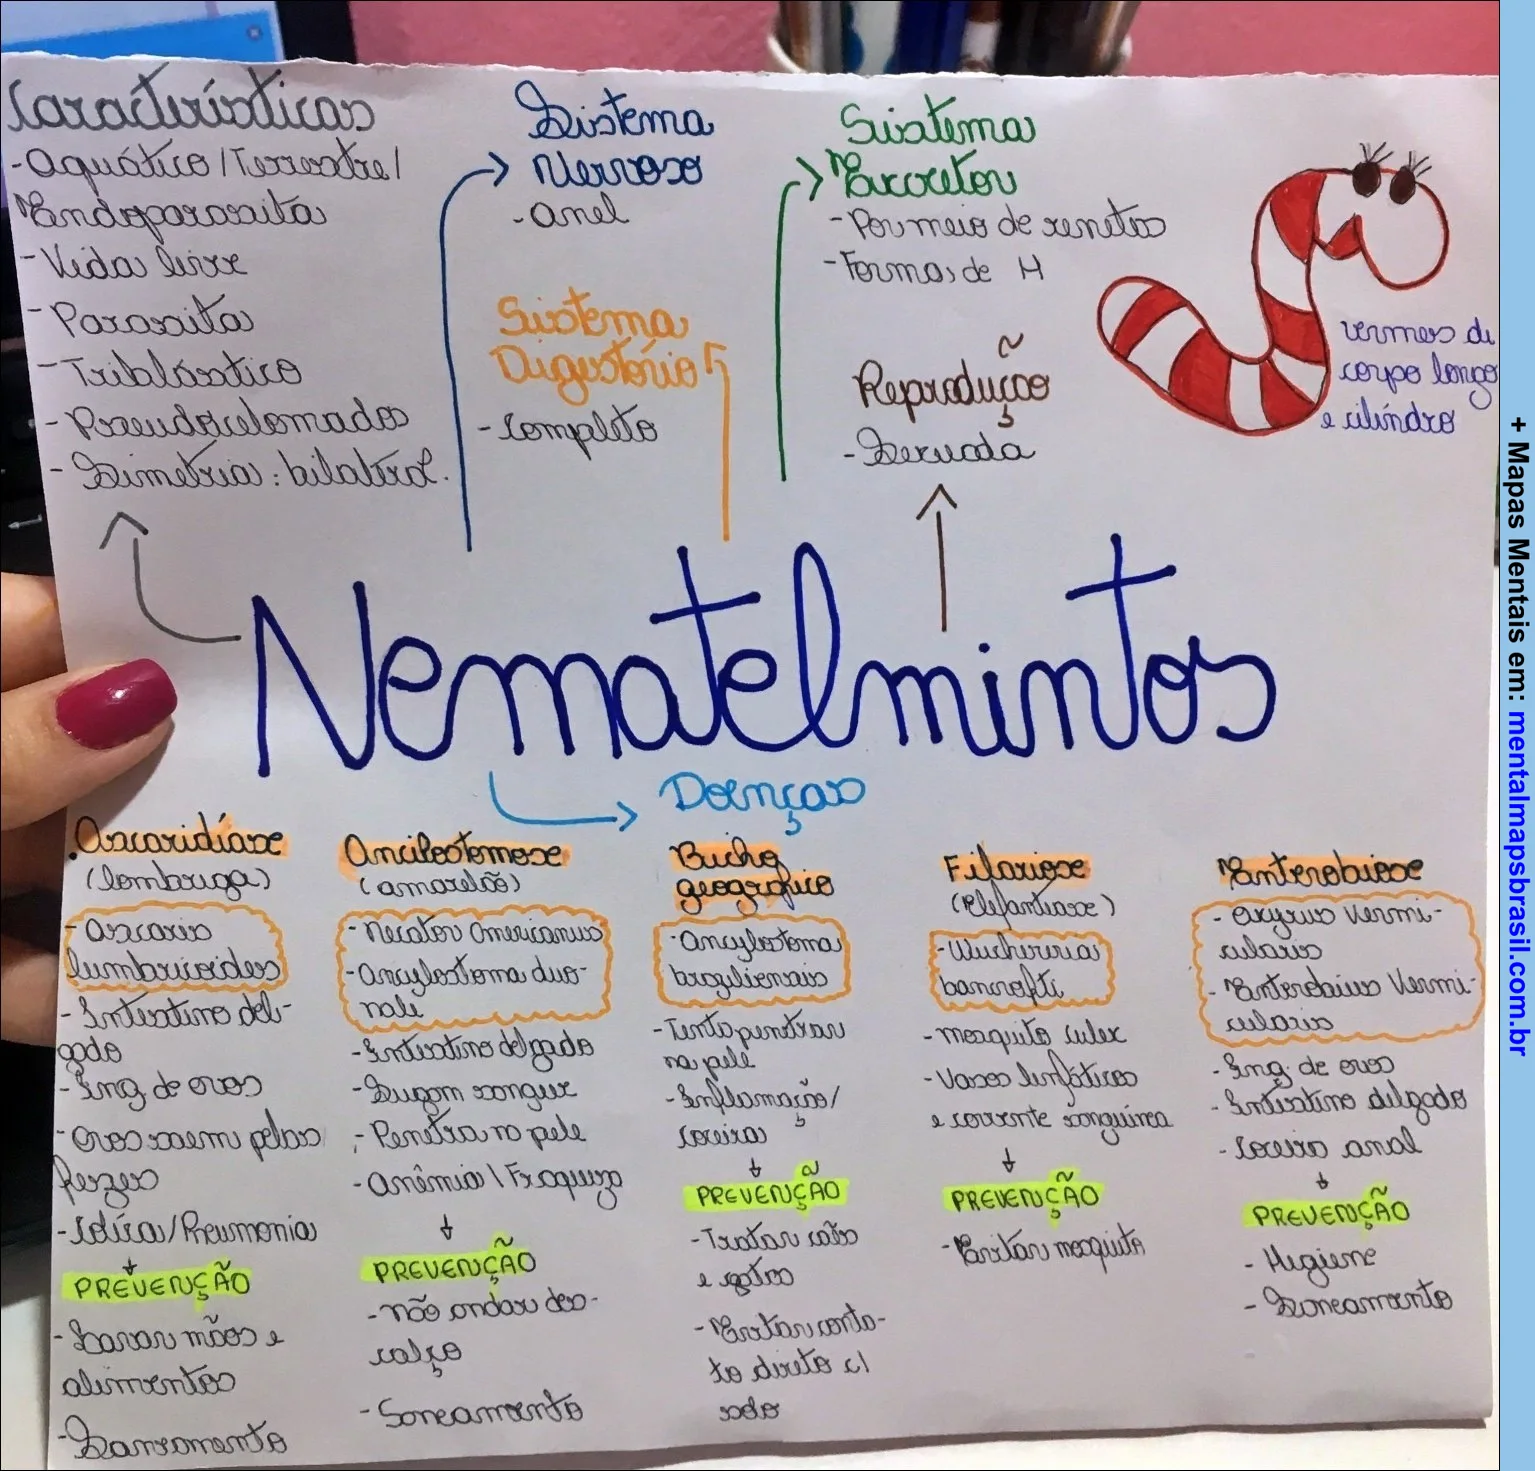 Características
- Aquático / Terrestre /
Endoparasita
- Vida livre
- Parasita
- Triblástico
- Pseudocelomados
- Simetria: bilateral.
Sistema
Nervoso
- Anel
Sistema
Digestório
- Completo
Sistema
Excretor
- Por meio de renetes
- Formas de H
Reprodução
- Sexuada
vermes de
corpo longo
e cilíndro
Nematelmintos
Doenças
Ascaridíase
(lombriga)
- Ascaris
lumbricoides
- Intestino del-
gado
- Ing. de ovos
- Ovos saem pelas
fezes
- Cólica/Pneumonia
PREVENÇÃO
- Lavar mãos e
alimentos
- Saneamento
Ancilostomose
(amarelão)
- Necator Americanus
- Ancylostoma duo-
nale
- Intestino delgado
- Sugam sangue
- Penetra na pele
- Anêmia \ Fraqueza
PREVENÇÃO
- Não andar des-
calço
- Saneamento
Bicho
geográfico
- Ancylostoma
braziliensis
- Tenta penetrar
na pele
- Inflamação/
Coceira
PREVENÇÃO
- Tratar cães
e gatos
- Evitar conta-
to direto c/
solo
Filariose
(Elefantíase)
- Wuchereria
bancrofti
- Mosquito culex
- Vasos linfáticos
e corrente sanguínea
PREVENÇÃO
- Evitar mosquito
Enterobiose
- Oxyrus Vermi-
cularis
- Enterobius Vermi-
cularis
- Ing. de ovos
- Intestino delgado
- Coceira anal
PREVENÇÃO
- Higiene
- Saneamento
+ Mapas Mentais em: mentalmapsbrasil.com.br